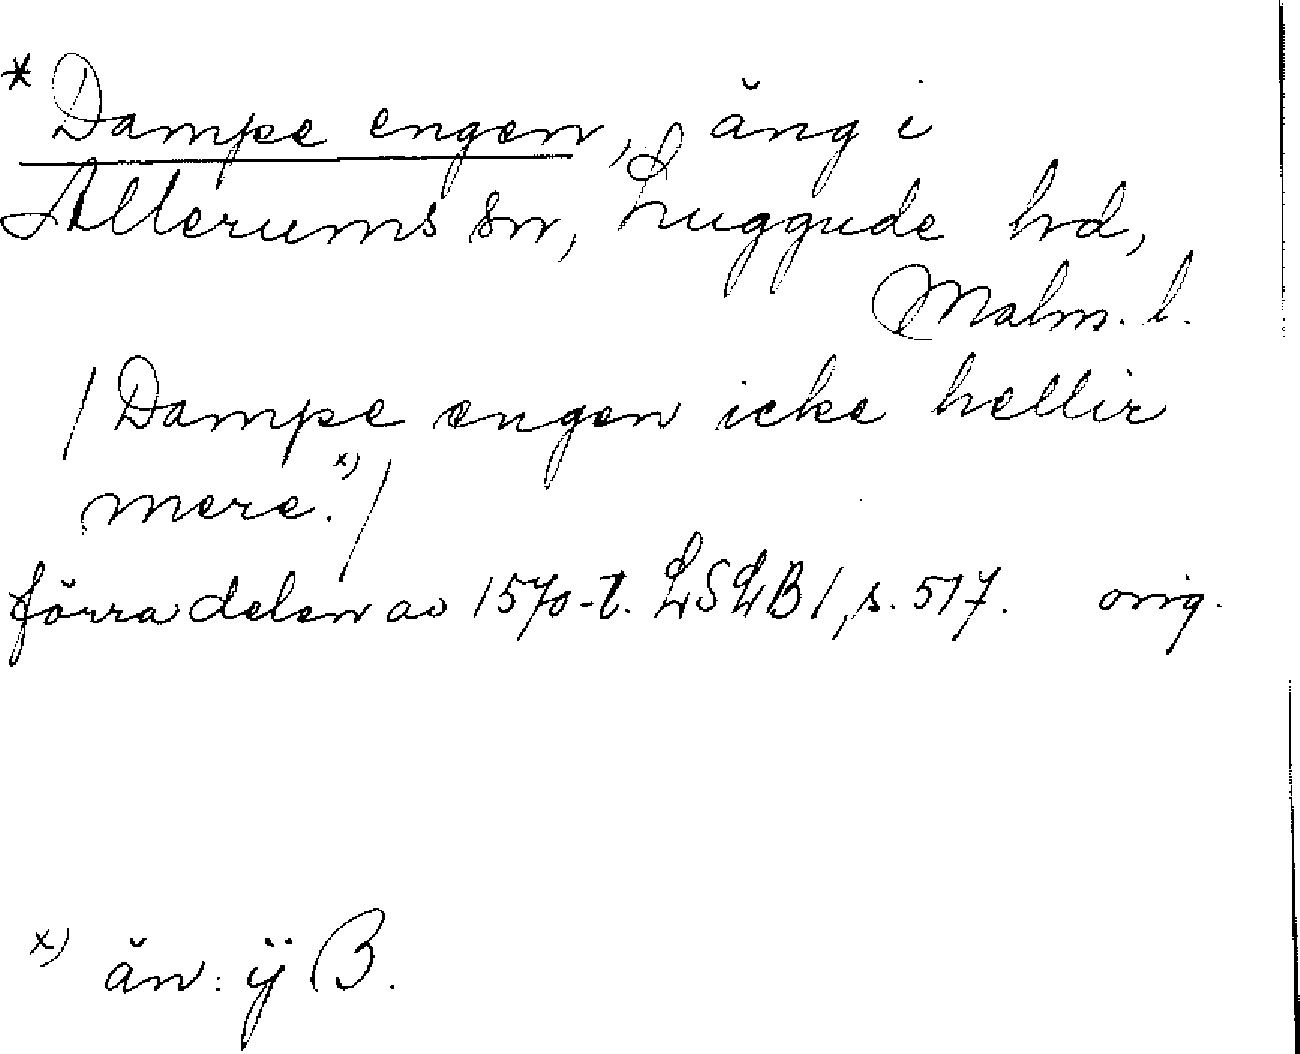 * Dampe engen, äng i
Allerums sn, Luggude hd,
Malm. l.
/ Dampe engen icke hellir
mere.x) /
förra delen av 1570-t. LSLB 1, s. 517. orig.
x) än: ÿ B.